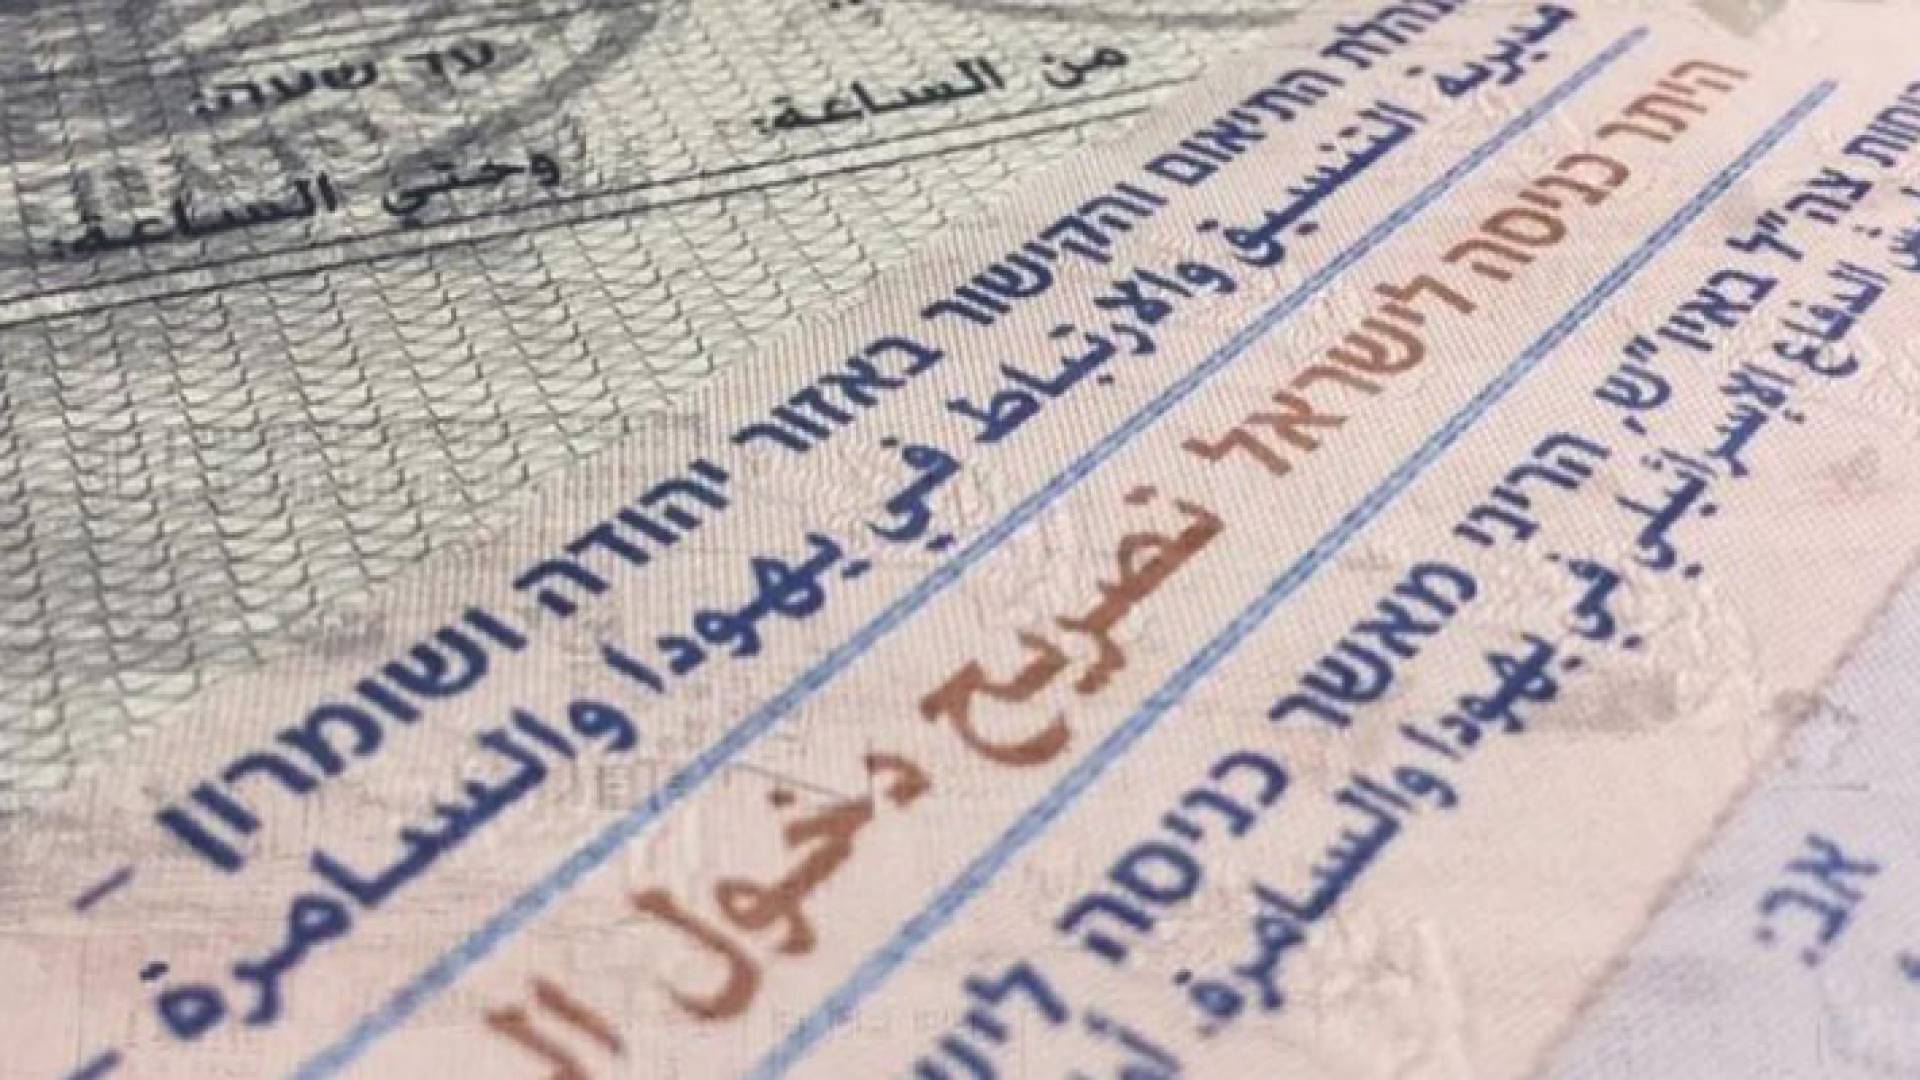 עד שעה:
من الساعة:
وحتي الساعة:
התיאום והקישור באזור יהודה ושומרון –
مديرية التنسيق والارتباط في يهودا والسامرة –
היתר כניסה לישראל تصريح دخول
צה"ל באיו"ש, הריני מאשר כניסה
الدفاع الإسرائيلي في يهودا والسامرة
אב.